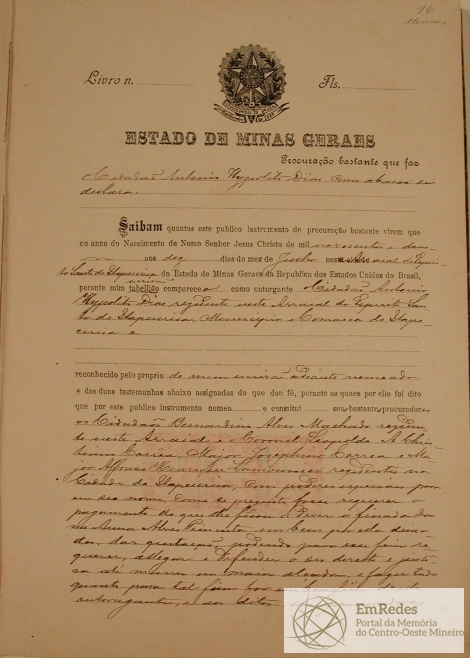 16
Livro n.
Fls.
ESTADO DE MINAS GERAES
Procuração bastante que faz
o Cidadão Antonio Hypolito Dias como abaixo se
declara.
Saibam quantos este publico instrumento de procuração bastante virem que
no anno do Nascimento de Nosso Senhor Jesus Christo de mil novecentos e
aos dez dias do mez de Junho neste Arraial do Espiri-
to Santo de Itapecerica do Estado de Minas Geraes da Republica dos Estados Unidos do Brasil,
perante mim tabellião compareceo como outorgante o Cidadão Antonio
Hypolito Dias residente neste Arraial do Espirito San-
to de Itapecerica, Municipio e Comarca de Itape-
cerica e
reconhecido pelo proprio de mim escrivão adiante nomeado
e das duas testemunhas abaixo assignadas do que dou fé, perante as quaes por elle foi dito
que por este publico instrumento nomea e constitui seus bastante procuradores
os Cidadãos Bernardino Alves Machado residen-
te neste Arraial e o Coronel Leopoldo A. Chris-
tiano Corrêa, Major Josephino Corrêa e Ma-
jor Affonso Henriques Lamounier residentes na
Cidade de Itapecerica, com poderes especiaes para
em seo nome, como se presente fosse requerer o
pagamento do que lhe ficou a dever a finada do-
na Anna Alves Pimenta em bens por ella deixa-
dos, dar quitação, podendo para esse fim re-
querer, allegar e defender o seo direito e justi-
ça até maior alçada, e fazer tudo
quanto para tal fim for em beneficio delle
outorgante, e aos ditos
EmRedes
Portal da Memória
do Centro-Oeste Mineiro